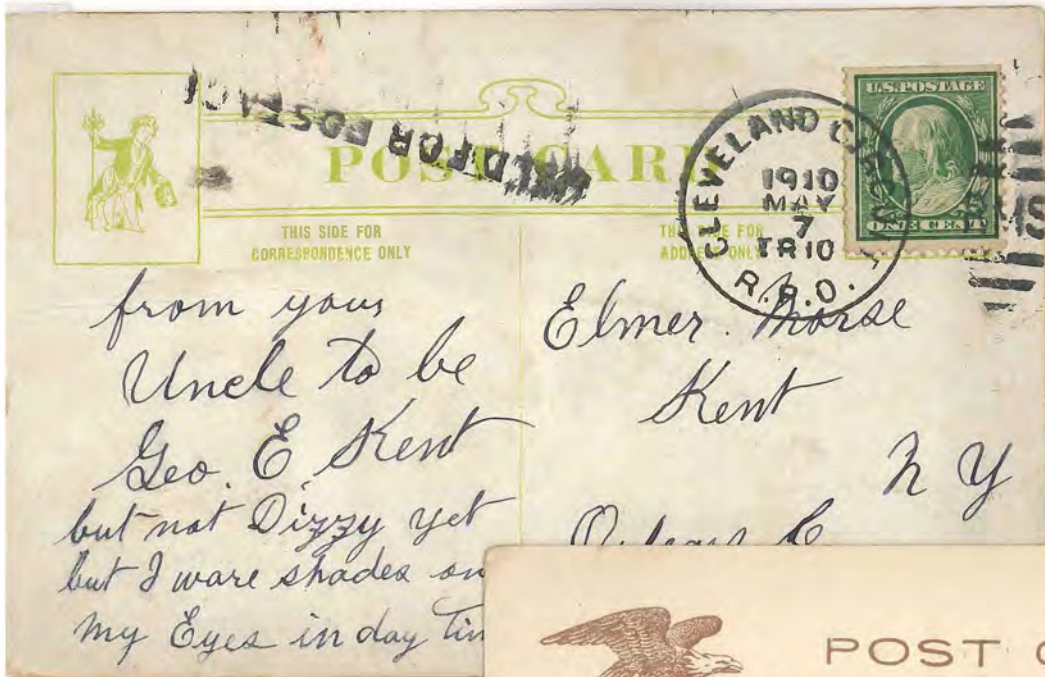 POST CARD
THIS SIDE FOR
CORRESPONDENCE ONLY
THIS SIDE FOR
ADDRESS ONLY
FOR POSTAGE
CLEVELAND
1910
MAY
7
TR 10
R.P.O.
U.S. POSTAGE
ONE CENT
from your
Uncle to be
Geo. E Kent
but not Dizzy yet
but I ware shades on
my Eyes in day tim
Elmer. Morse
Kent
N Y
Orleans Co
POST C